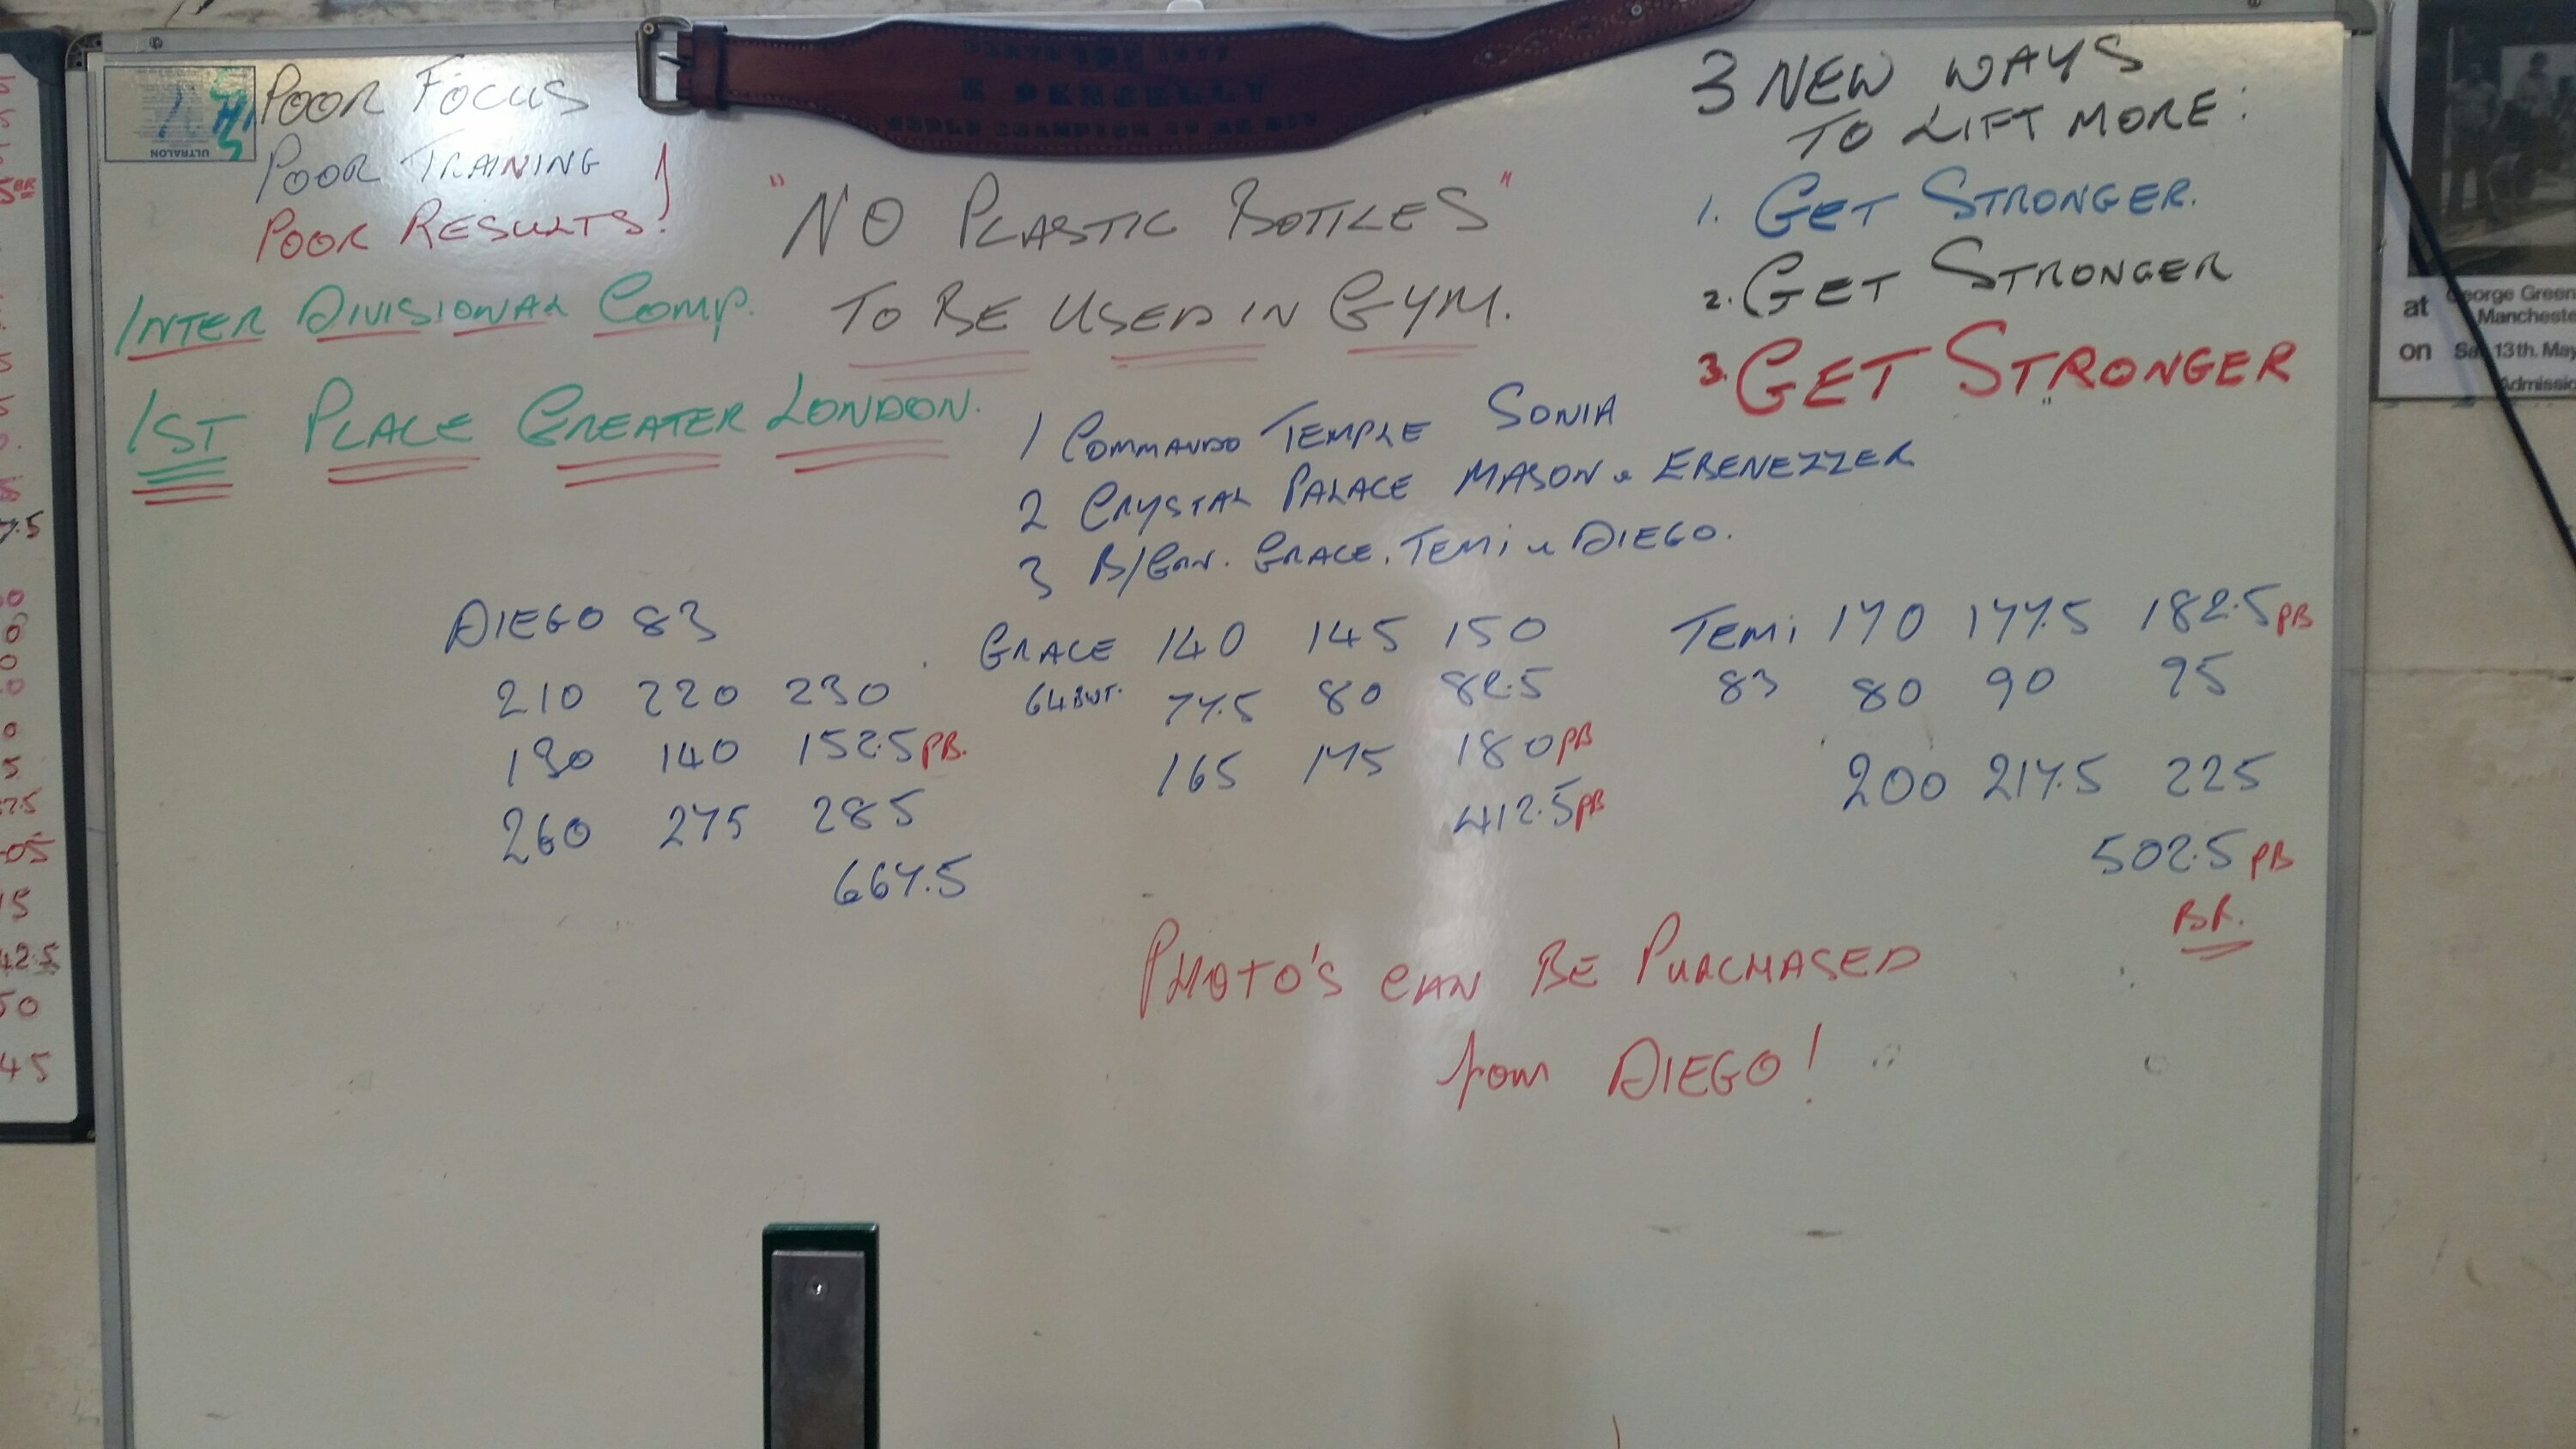 POOR FOCUS
POOR TRAINING
POOR RESULTS!
ULTRALON
K PENCELLY
3 NEW WAYS
TO LIFT MORE:
1. GET STRONGER.
2. GET STRONGER
3. GET STRONGER
"NO PLASTIC BOTTLES"
TO BE USED IN GYM.
INTER DIVISIONAL COMP.
1ST PLACE GREATER LONDON.
1 COMMANDO TEMPLE SONIA
2 CRYSTAL PALACE MASON & EBENEZZER
3 B/GRN. GRACE. TEMI & DIEGO.
DIEGO 83
210 220 230
130 140 152.5 PB.
260 275 285
667.5
GRACE 140 145 150
64 BWT. 77.5 80 82.5
165 175 180 PB
412.5 PB
TEMI 170 177.5 182.5 PB
83 80 90 95
200 217.5 225
502.5 PB
BR.
PHOTO'S CAN BE PURCHASED
from DIEGO!
at George Green
Mancheste
on Sat 13th. May
Admissio
7.5
05
15
42.5
50
45